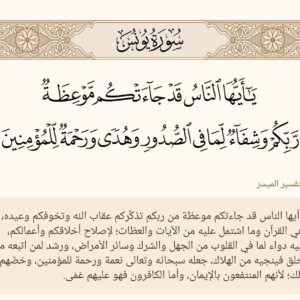 سُورَةُ يُونُسَ
يَٰٓأَيُّهَا ٱلنَّاسُ قَدۡ جَآءَتۡكُم مَّوۡعِظَةٞ
رَّبِّكُمۡ وَشِفَآءٞ لِّمَا فِي ٱلصُّدُورِ وَهُدٗى وَرَحۡمَةٞ لِّلۡمُؤۡمِنِينَ
تفسير الميسر
أيها الناس قد جاءتكم موعظة من ربكم تذكِّركم عقاب الله وتخوفكم وعيده،
في القرآن وما اشتمل عليه من الآيات والعظات؛ لإصلاح أخلاقكم وأعمالكم،
يه دواء لما في القلوب من الجهل والشرك وسائر الأمراض، ورشد لمن اتبعه من
خلق فينجيه من الهلاك، جعله سبحانه وتعالى نعمة ورحمة للمؤمنين، وخصَّهم
لك؛ لأنهم المنتفعون بالإيمان، وأما الكافرون فهو عليهم عَمَى.